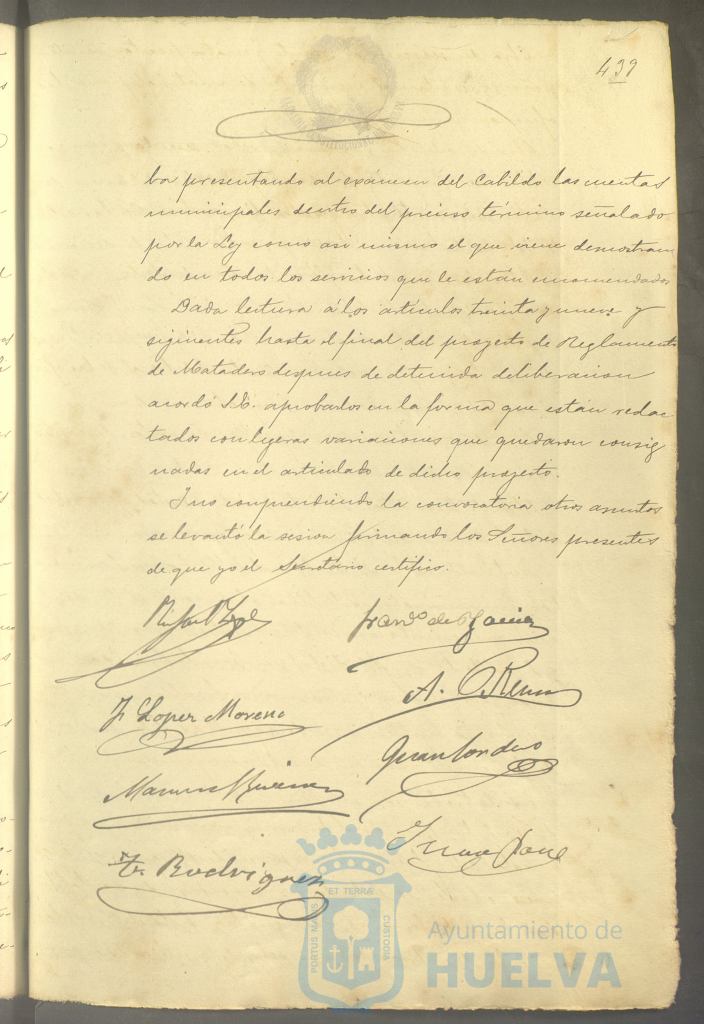 439
ba presentando al exámen del Cabildo las cuentas
municipales dentro del preciso término señalado
por la Ley como asi mismo el que viene demostran
do en todos los servicios que le están encomendados
Dada lectura á los artículos treinta y nueve y
siguientes hasta el final del proyecto de Reglamento
de Matadero despues de detenida deliberacion
acordó S.E. aprobarlos en la forma que están redac
tados con ligeras variaciones que quedaron consig
nadas en el articulado de dicho proyecto.
Y no comprendiendo la convocatoria otros asuntos
se levantó la sesion firmando los Señores presentes
de que yo el Secretario certifico.
Franco de
A.
F. Lopez Moreno
Juan Cordero
Manuel
F. Rodriguez
PORTUS MARIS ET TERRÆ CUSTODIA
Ayuntamiento de
HUELVA